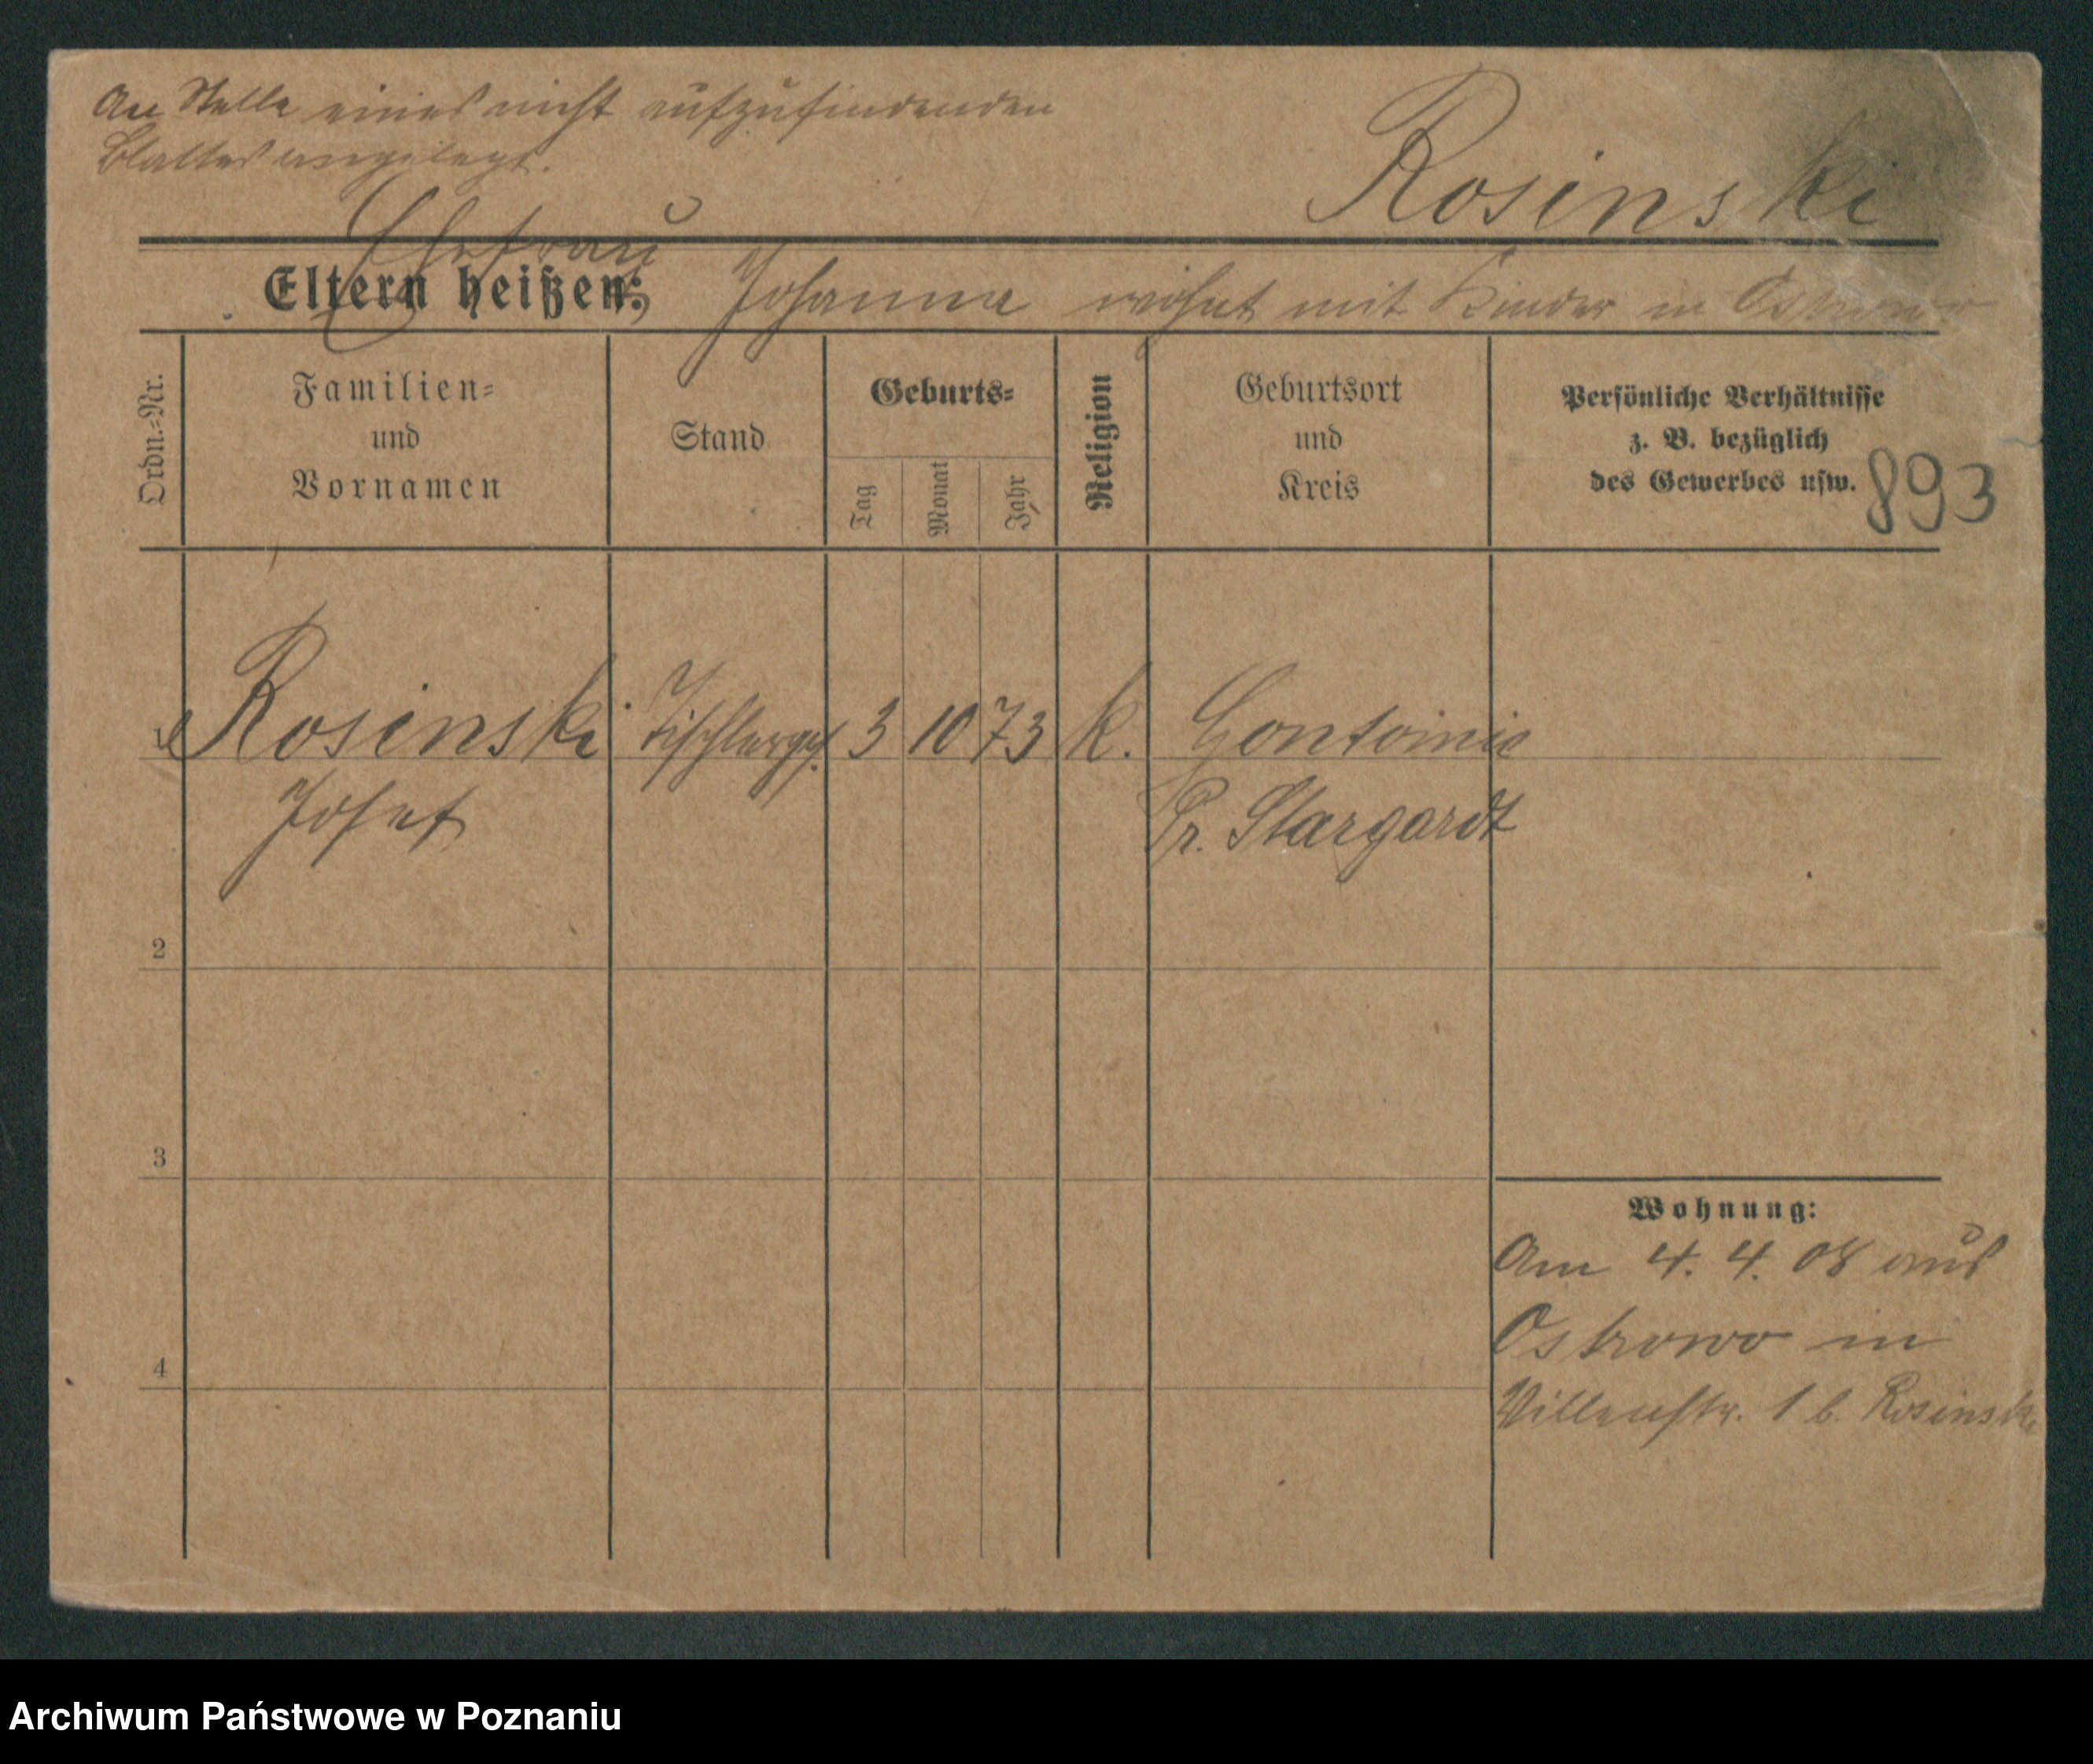 An Stelle eines nicht aufzufindenden
Blattes angelegt.
Rosinski
Ehefrau
Eltern heißen: Johanna wohnt mit Kinder in Ostrowo
Ordn.=Nr.
Familien=
und
Vornamen
Stand
Geburts=
Tag
Monat
Jahr
Religion
Geburtsort
und
Kreis
Persönliche Verhältnisse
z. B. bezüglich
des Gewerbes usw.
893
1 Rosinski Tischlerges. 3 10 73 k.
Josef Pr. Stargardt
2
3
Wohnung:
Am 4. 4. 08 aus
Ostrowo in
4
Villenstr. 1 b. Rosinski
Archiwum Państwowe w Poznaniu